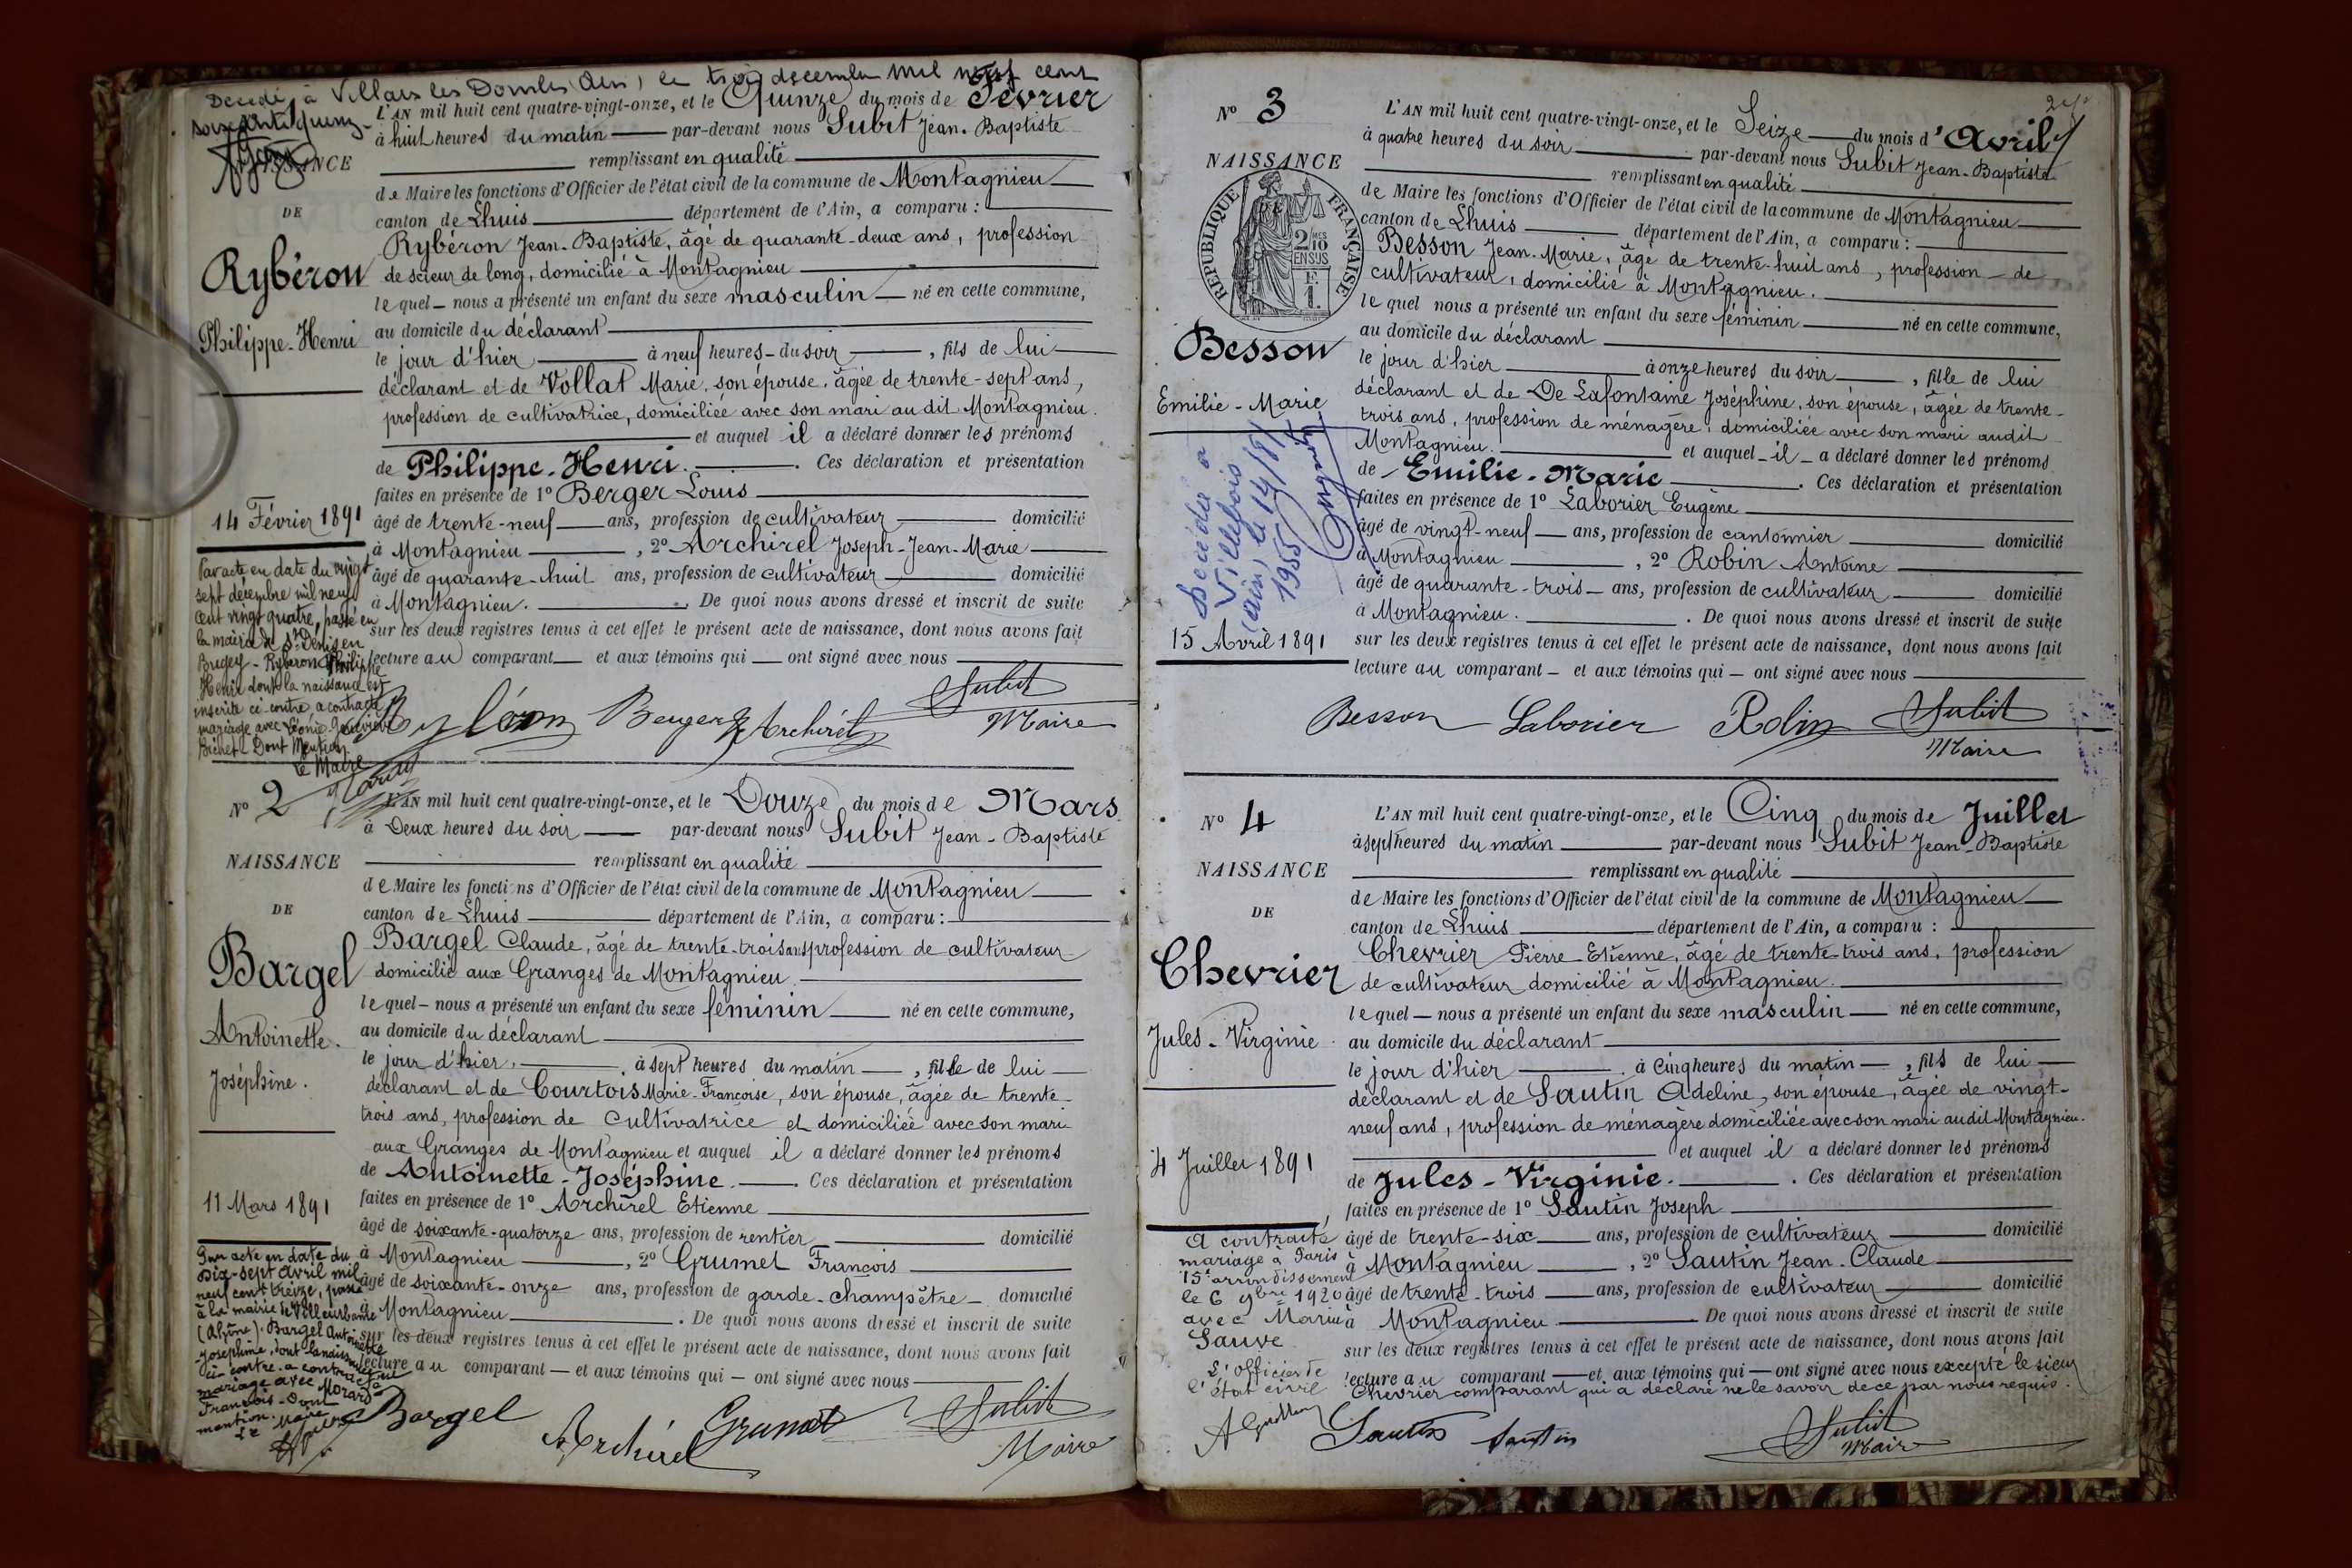 Décédé à Villars les Dombes (Ain) le trois décembre mil neuf cent
soixante quinze
NAISSANCE
DE
Rybéron
Philippe-Henri
14 Février 1891
Par acte en date du vingt
sept décembre mil neuf
cent vingt quatre, passé en
la mairie de St Denis en
Bugey - Rybéron Philippe
Henri dont la naissance est
inscrite ci-contre, a contracté
mariage avec Léonie
Bichet - Dont Mention.
Le Maire
L'AN mil huit cent quatre-vingt-onze, et le Quinze du mois de Février
à huit heures du matin par-devant nous Subit Jean-Baptiste
remplissant en qualité
de Maire les fonctions d'Officier de l'état civil de la commune de Montagnieu
canton de Lhuis département de l'Ain, a comparu :
Rybéron Jean-Baptiste, âgé de quarante-deux ans, profession
de scieur de long, domicilié à Montagnieu
lequel nous a présenté un enfant du sexe masculin né en cette commune,
au domicile du déclarant
le jour d'hier à neuf heures du soir, fils de lui
déclarant et de Vollat Marie, son épouse, âgée de trente-sept ans,
profession de cultivatrice, domiciliée avec son mari au dit Montagnieu.
et auquel il a déclaré donner les prénoms
de Philippe-Henri. Ces déclaration et présentation
faites en présence de 1º Berger Louis
âgé de trente-neuf ans, profession de cultivateur domicilié
à Montagnieu, 2º Archirel Joseph-Jean-Marie
âgé de quarante-huit ans, profession de cultivateur domicilié
à Montagnieu. De quoi nous avons dressé et inscrit de suite
sur les deux registres tenus à cet effet le présent acte de naissance, dont nous avons fait
lecture au comparant et aux témoins qui ont signé avec nous
Rybéron Berger Archirel Subit
Maire
Nº 2
NAISSANCE
DE
Bargel
Antoinette.
Joséphine.
11 Mars 1891
Par acte en date du
Dix-sept avril mil
neuf cent treize, passé
à la mairie de Villeurbanne
(Rhône). Bargel Antoinette
Joséphine, dont la naissance
ci-contre a contracté
mariage avec Morard
François - Dont
mention.
Le Maire
L'AN mil huit cent quatre-vingt-onze, et le Douze du mois de Mars
à Deux heures du soir par-devant nous Subit Jean-Baptiste
remplissant en qualité
de Maire les fonctions d'Officier de l'état civil de la commune de Montagnieu
canton de Lhuis département de l'Ain, a comparu :
Bargel Claude, âgé de trente-trois ans profession de cultivateur
domicilié aux Granges de Montagnieu.
lequel nous a présenté un enfant du sexe féminin né en cette commune,
au domicile du déclarant
le jour d'hier, à sept heures du matin, fille de lui
déclarant et de Courtois Marie-Françoise, son épouse, âgée de trente-
trois ans, profession de cultivatrice et domiciliée avec son mari
aux Granges de Montagnieu et auquel il a déclaré donner les prénoms
de Antoinette-Joséphine. Ces déclaration et présentation
faites en présence de 1º Archirel Etienne
âgé de soixante-quatorze ans, profession de rentier domicilié
à Montagnieu, 2º Grumel François
âgé de soixante-onze ans, profession de garde-champêtre domicilié
à Montagnieu. De quoi nous avons dressé et inscrit de suite
sur les deux registres tenus à cet effet le présent acte de naissance, dont nous avons fait
lecture au comparant et aux témoins qui ont signé avec nous
Bargel Archirel Grumel Subit
Maire
Nº 3
NAISSANCE
DE
RÉPUBLIQUE FRANÇAISE
2/10 MES
EN SUS
F.
1.
Besson
Emilie-Marie
Décédée à
Villebois
(ain) le 14/8/
1955
15 Avril 1891
L'AN mil huit cent quatre-vingt-onze, et le Seize du mois d'Avril
à quatre heures du soir par-devant nous Subit Jean-Baptiste
remplissant en qualité
de Maire les fonctions d'Officier de l'état civil de la commune de Montagnieu
canton de Lhuis département de l'Ain, a comparu :
Besson Jean-Marie, âgé de trente-huit ans, profession de
cultivateur, domicilié à Montagnieu.
lequel nous a présenté un enfant du sexe féminin né en cette commune,
au domicile du déclarant
le jour d'hier à onze heures du soir, fille de lui
déclarant et de De Lafontaine Joséphine, son épouse, âgée de trente-
trois ans, profession de ménagère, domiciliée avec son mari audit
Montagnieu. et auquel il a déclaré donner les prénoms
de Emilie-Marie. Ces déclaration et présentation
faites en présence de 1º Laborier Eugène
âgé de vingt-neuf ans, profession de cantonnier domicilié
à Montagnieu, 2º Robin Antoine
âgé de quarante-trois ans, profession de cultivateur domicilié
à Montagnieu. De quoi nous avons dressé et inscrit de suite
sur les deux registres tenus à cet effet le présent acte de naissance, dont nous avons fait
lecture au comparant et aux témoins qui ont signé avec nous
Besson Laborier Robin Subit
Maire
Nº 4
NAISSANCE
DE
Chevrier
Jules-Virginie.
4 Juillet 1891
A contracté
mariage à Paris
15e arrondissement
le 6 9bre 1920
avec Marie
Sauve
L'officier de
l'état civil
L'AN mil huit cent quatre-vingt-onze, et le Cinq du mois de Juillet
à sept heures du matin par-devant nous Subit Jean-Baptiste
remplissant en qualité
de Maire les fonctions d'Officier de l'état civil de la commune de Montagnieu
canton de Lhuis département de l'Ain, a comparu :
Chevrier Pierre-Etienne, âgé de trente-trois ans, profession
de cultivateur domicilié à Montagnieu.
lequel nous a présenté un enfant du sexe masculin né en cette commune,
au domicile du déclarant
le jour d'hier à cinq heures du matin, fils de lui
déclarant et de Sautin Adeline, son épouse, âgée de vingt-
neuf ans, profession de ménagère domiciliée avec son mari audit Montagnieu.
et auquel il a déclaré donner les prénoms
de Jules-Virginie. Ces déclaration et présentation
faites en présence de 1º Sautin Joseph
âgé de trente-six ans, profession de cultivateur domicilié
à Montagnieu, 2º Sautin Jean-Claude
âgé de trente-trois ans, profession de cultivateur domicilié
à Montagnieu De quoi nous avons dressé et inscrit de suite
sur les deux registres tenus à cet effet le présent acte de naissance, dont nous avons fait
lecture au comparant et aux témoins qui ont signé avec nous excepté le sieur
Chevrier comparant qui a déclaré ne le savoir de ce par nous requis.
Sautin Sautin Subit
Maire